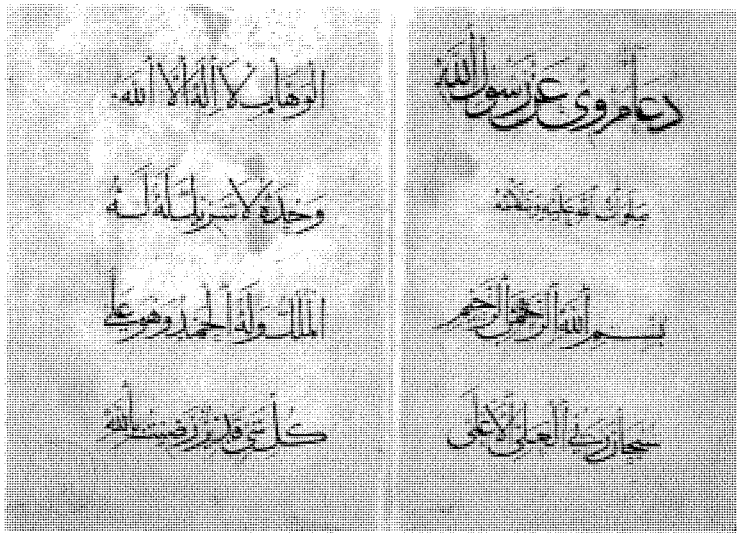 دعا مروی عن رسول الله
صلوات الله علیه وسلامه
بسم الله الرحمن الرحیم
سبحان ربی العلی الاعلی
الوهاب لا اله الا الله
وحده لا شریك له له
الملك وله الحمد وهو علی
كل شی قدیر رضیت بالله